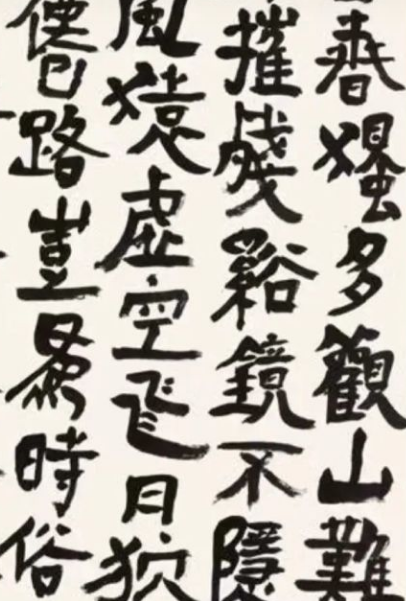 春獨多觀山難
摧殘谿鏡不隱
風猿虛空飛月狖
路豈易時俗